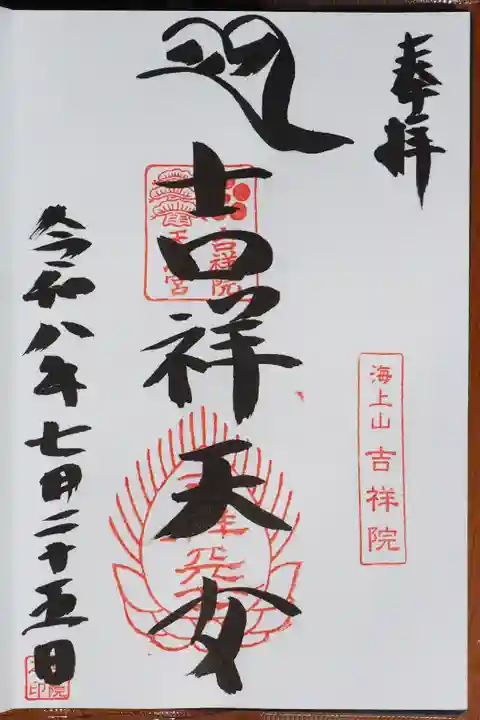 奉拝
海上山 吉祥院
吉祥天女
吉祥院
天満宮
令和八年七月二十五日